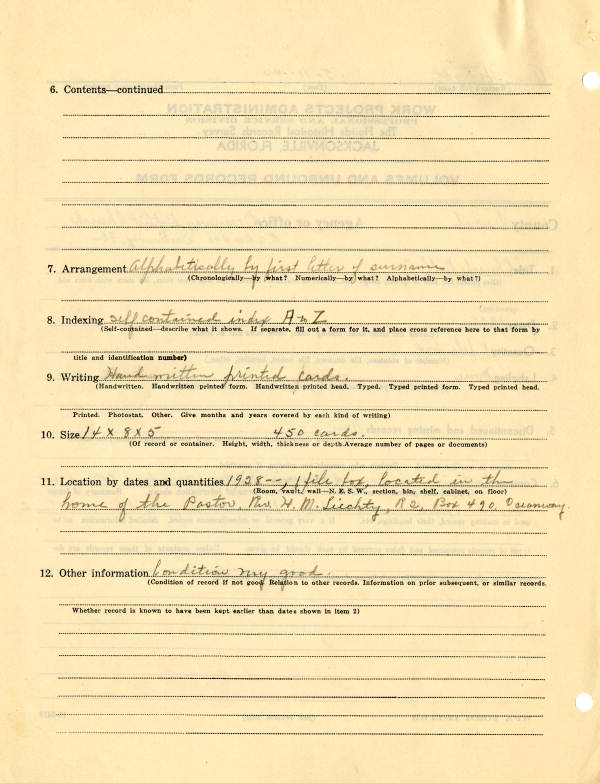 6. Contents—continued
7. Arrangement Alphabetically by first letter of surname
(Chronologically—by what? Numerically—by what? Alphabetically—by what?)
8. Indexing self contained index A to Z
(Self-contained—describe what it shows. If separate, fill out a form for it, and place cross reference here to that form by
title and identification number)
9. Writing Hand written printed cards.
(Handwritten. Handwritten printed form. Handwritten printed head. Typed. Typed printed form. Typed printed head.
Printed. Photostat. Other. Give months and years covered by each kind of writing)
10. Size 14 X 8 X 5 450 cards.
(Of record or container. Height, width, thickness or depth. Average number of pages or documents)
11. Location by dates and quantities 1928--, 1 file box, located in the
(Room, vault, wall—N. E. S. W., section, bin, shelf, cabinet, on floor)
home of the Pastor, Rev. H. M. Liechty, R2, Box 490, Oceanway.
12. Other information Condition very good.
(Condition of record if not good. Relation to other records. Information on prior subsequent, or similar records.
Whether record is known to have been kept earlier than dates shown in item 2)